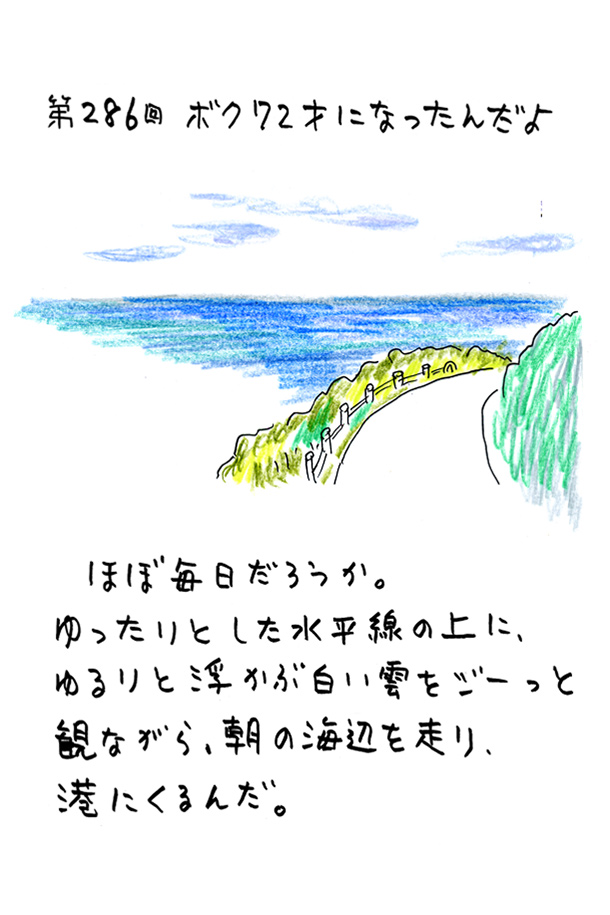 第286回 ボク72才になったんだよ
ほぼ毎日だろうか。
ゆったりとした水平線の上に、
ゆるりと浮かぶ白い雲をジーっと
観ながら、朝の海辺を走り、
港にくるんだ。